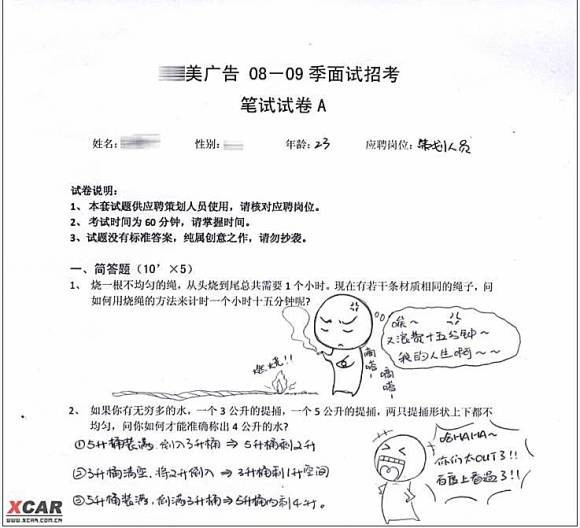 美广告 08－09 季面试招考
笔试试卷 A
姓名: 性别: 年龄: 23 应聘岗位: 策划人员
试卷说明：
1、 本套试题供应聘策划人员使用，请核对应聘岗位。
2、 考试时间为 60 分钟，请掌握时间。
3、试题没有标准答案，纯属创意之作，请勿抄袭。
一、简答题（10’×5）
1、 烧一根不均匀的绳，从头烧到尾总共需要 1 个小时。现在有若干条材质相同的绳子，问
如何用烧绳的方法来计时一个小时十五分钟呢?
唉～
又浪费十五分钟～
我的人生啊～～
燃烧!!
滴嗒~
滴嗒~
2、 如果你有无穷多的水，一个 3 公升的提捅，一个 5 公升的提捅，两只提捅形状上下都不
均匀，问你如何才能准确称出 4 公升的水?
①5升桶装满,倒入3升桶⇒5升桶剩2升
②3升桶清空,将2升倒入⇒3升桶剩1升空间
③5升桶装满,倒满3升桶⇒5升桶内剩4升。
你们太OUT了!!
百度上看过了!!
XCAR
WWW.XCAR.COM.CN